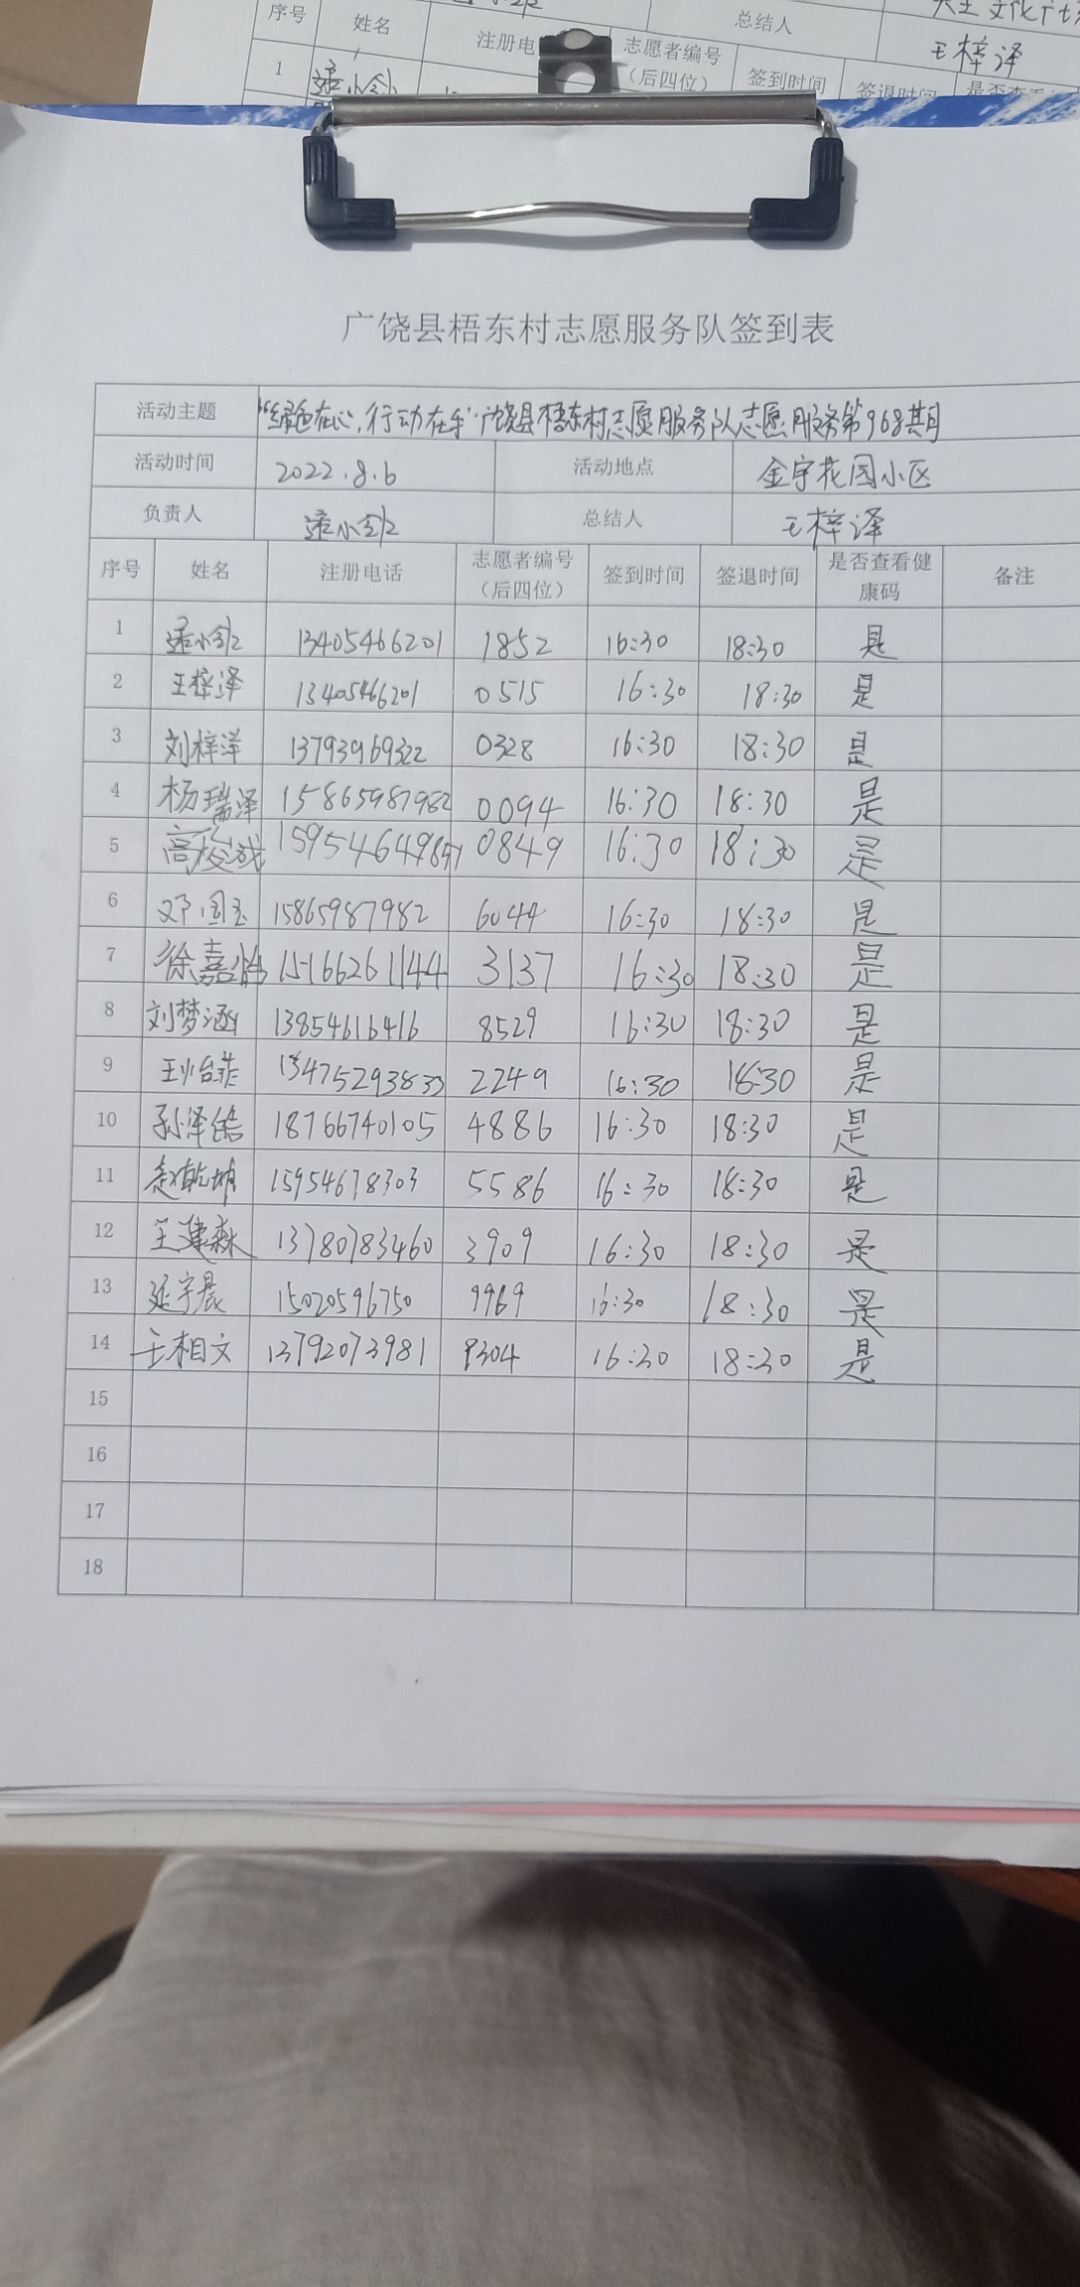 序号 姓名 注册电 志愿者编号（后四位） 签到时间 签退时间 总结人 王梓泽
1
广饶县梧东村志愿服务队签到表
活动主题 “绿色在心,行动在手”广饶县梧东村志愿服务队志愿服务第968期
活动时间 2022.8.6 活动地点 金宇花园小区
负责人 总结人 王梓泽
序号 姓名 注册电话 志愿者编号（后四位） 签到时间 签退时间 是否查看健康码 备注
1 13405466201 1852 16:30 18:30 是
2 王梓泽 13405466201 0515 16:30 18:30 是
3 刘梓洋 13793969322 0328 16:30 18:30 是
4 杨瑞泽 15865987982 0094 16:30 18:30 是
5 高俊成 0849 16:30 18:30 是
6 邓国玉 15865987982 6044 16:30 18:30 是
7 徐嘉怡 15166261144 3137 16:30 18:30 是
8 刘梦涵 13854616416 8529 16:30 18:30 是
9 王怡菲 13475293833 2249 16:30 18:30 是
10 孙泽皓 18766740105 4886 16:30 18:30 是
11 赵乾坤 15954678303 5586 16:30 18:30 是
12 王建森 13780783460 3909 16:30 18:30 是
13 延宇晨 15020596750 9969 16:30 18:30 是
14 王相文 13792073981 8304 16:30 18:30 是
15
16
17
18